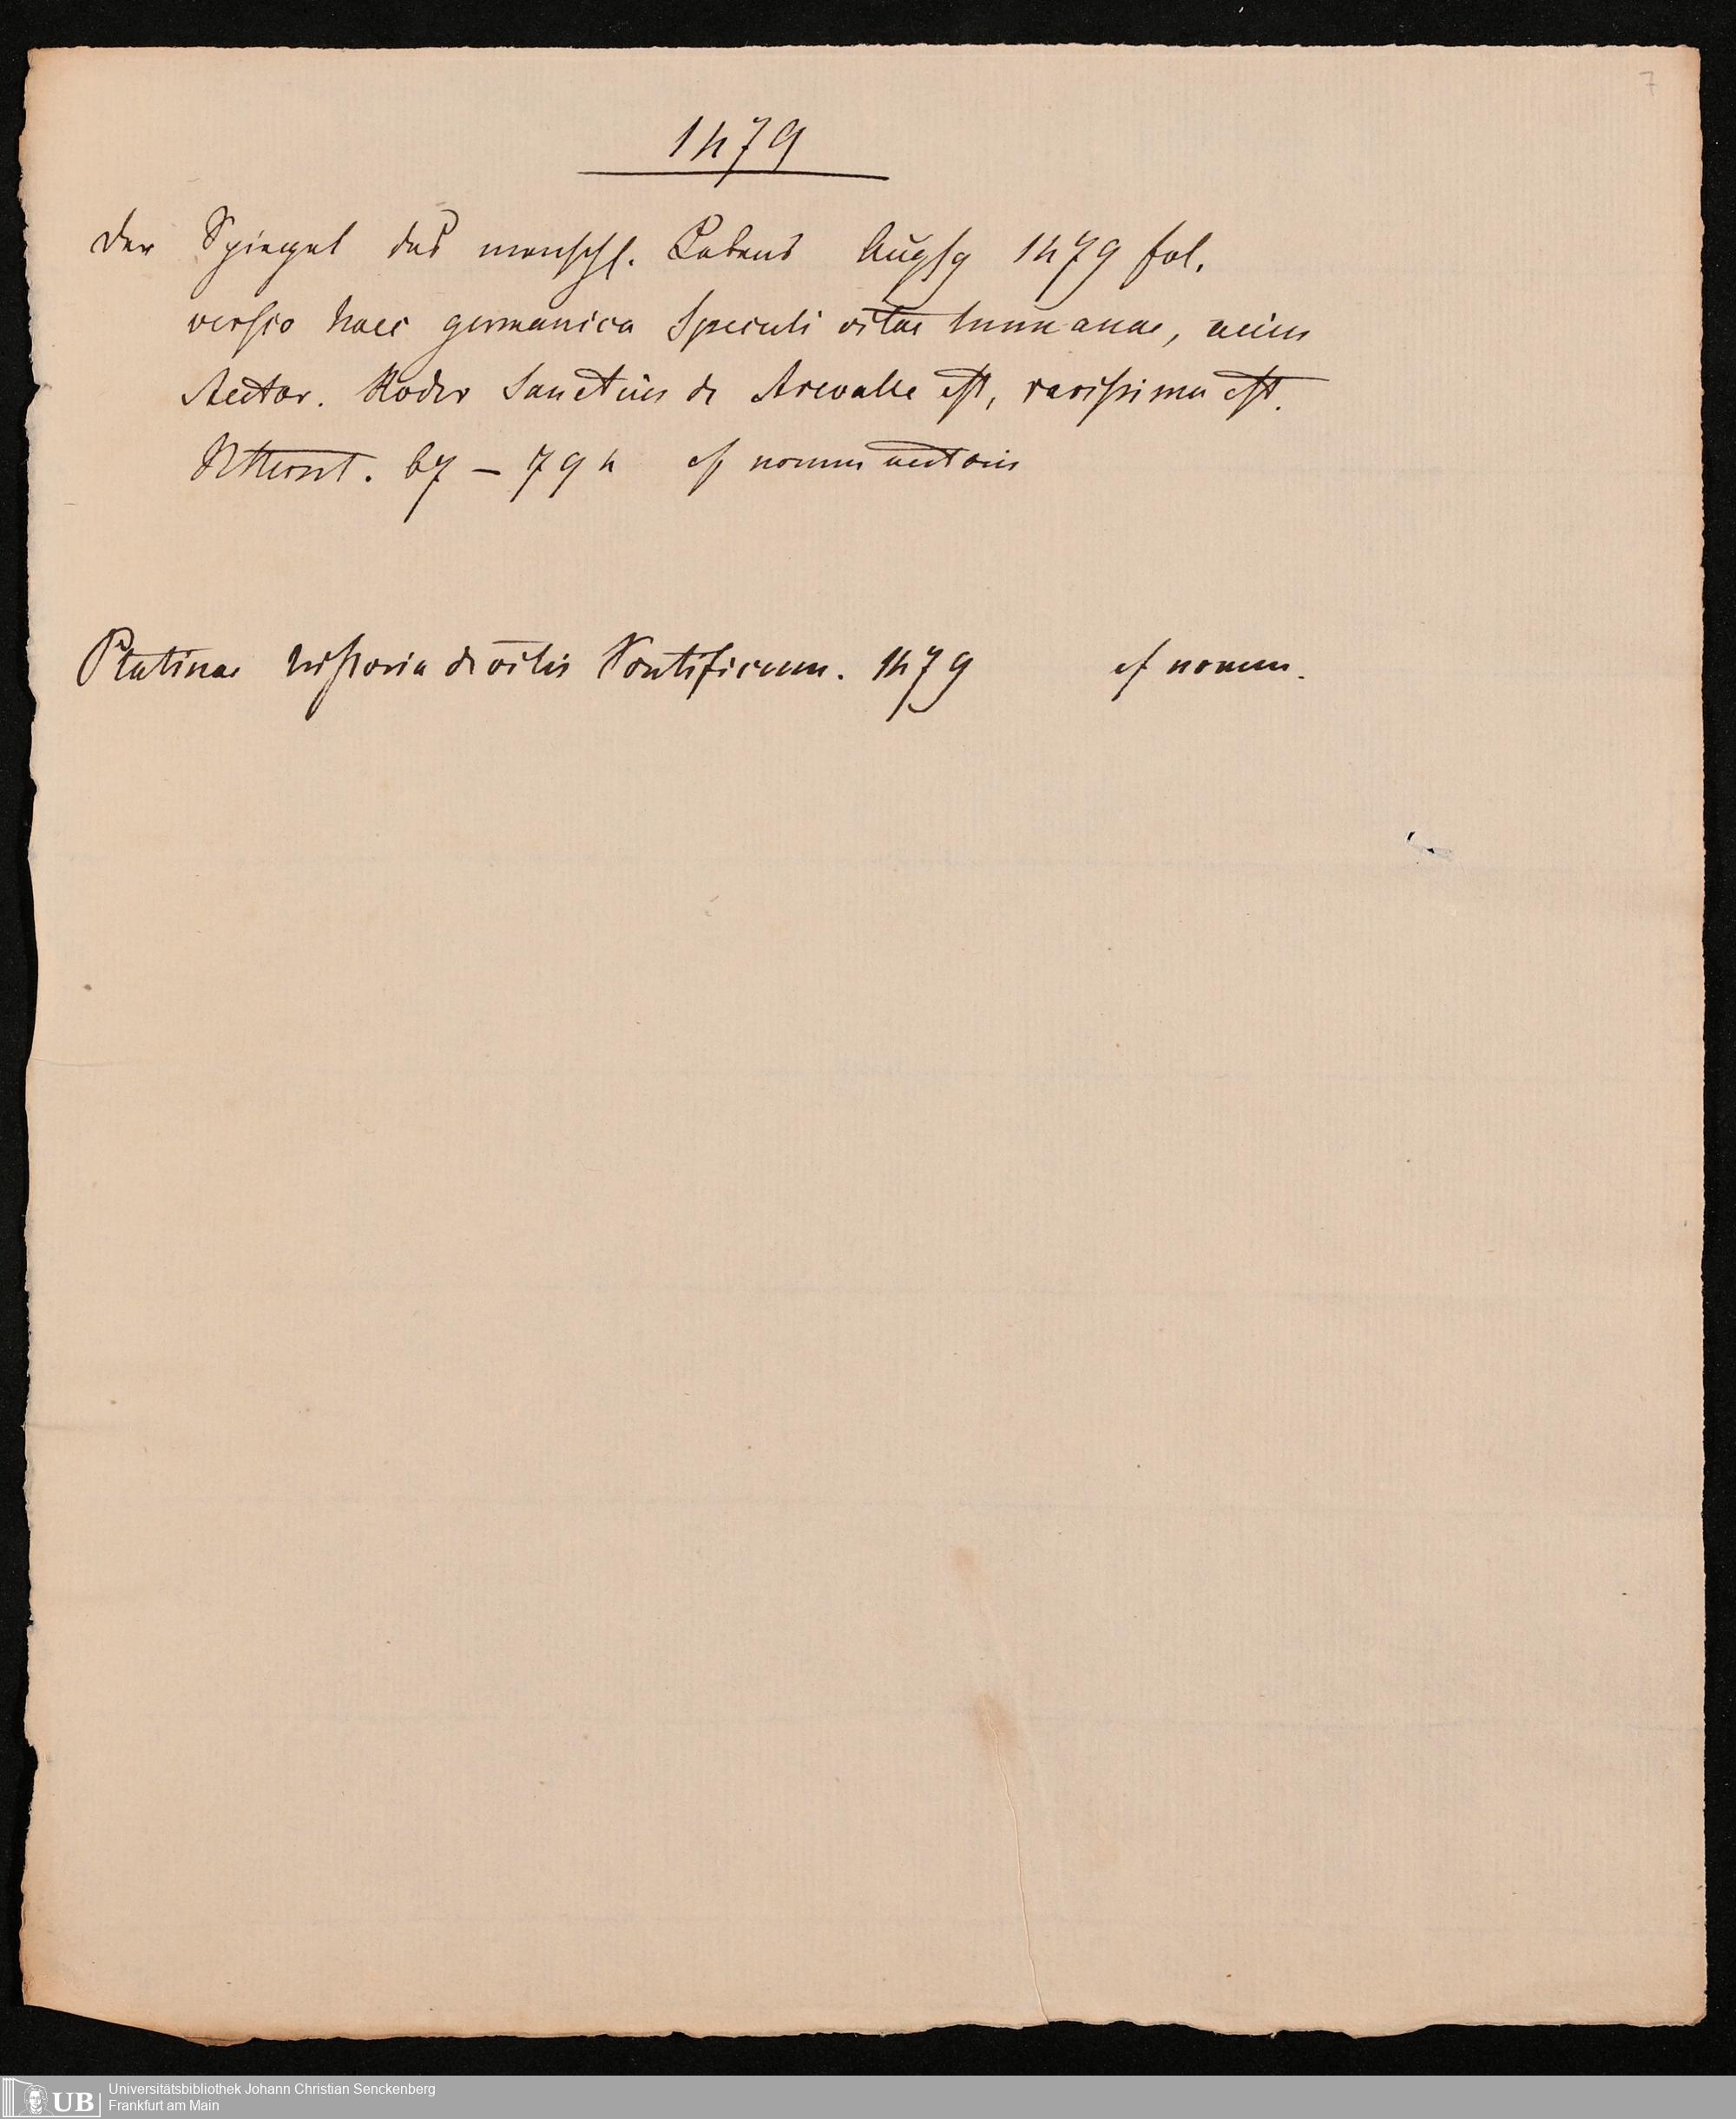 7
1479
Der Spiegel des menschl. Lebens Augsg 1479 fol.
versio haec germanica Speculi vitae humanae, cuius
Auctor. Roder Sanctius de Arevalle est, rarissima est.
67 – 794 cf nomen auctoris
Platinae historia de vitis Pontificum. 1479 cf nomen.
UB Universitätsbibliothek Johann Christian Senckenberg
Frankfurt am Main